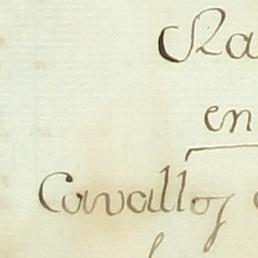 Ra
en
Cavallos